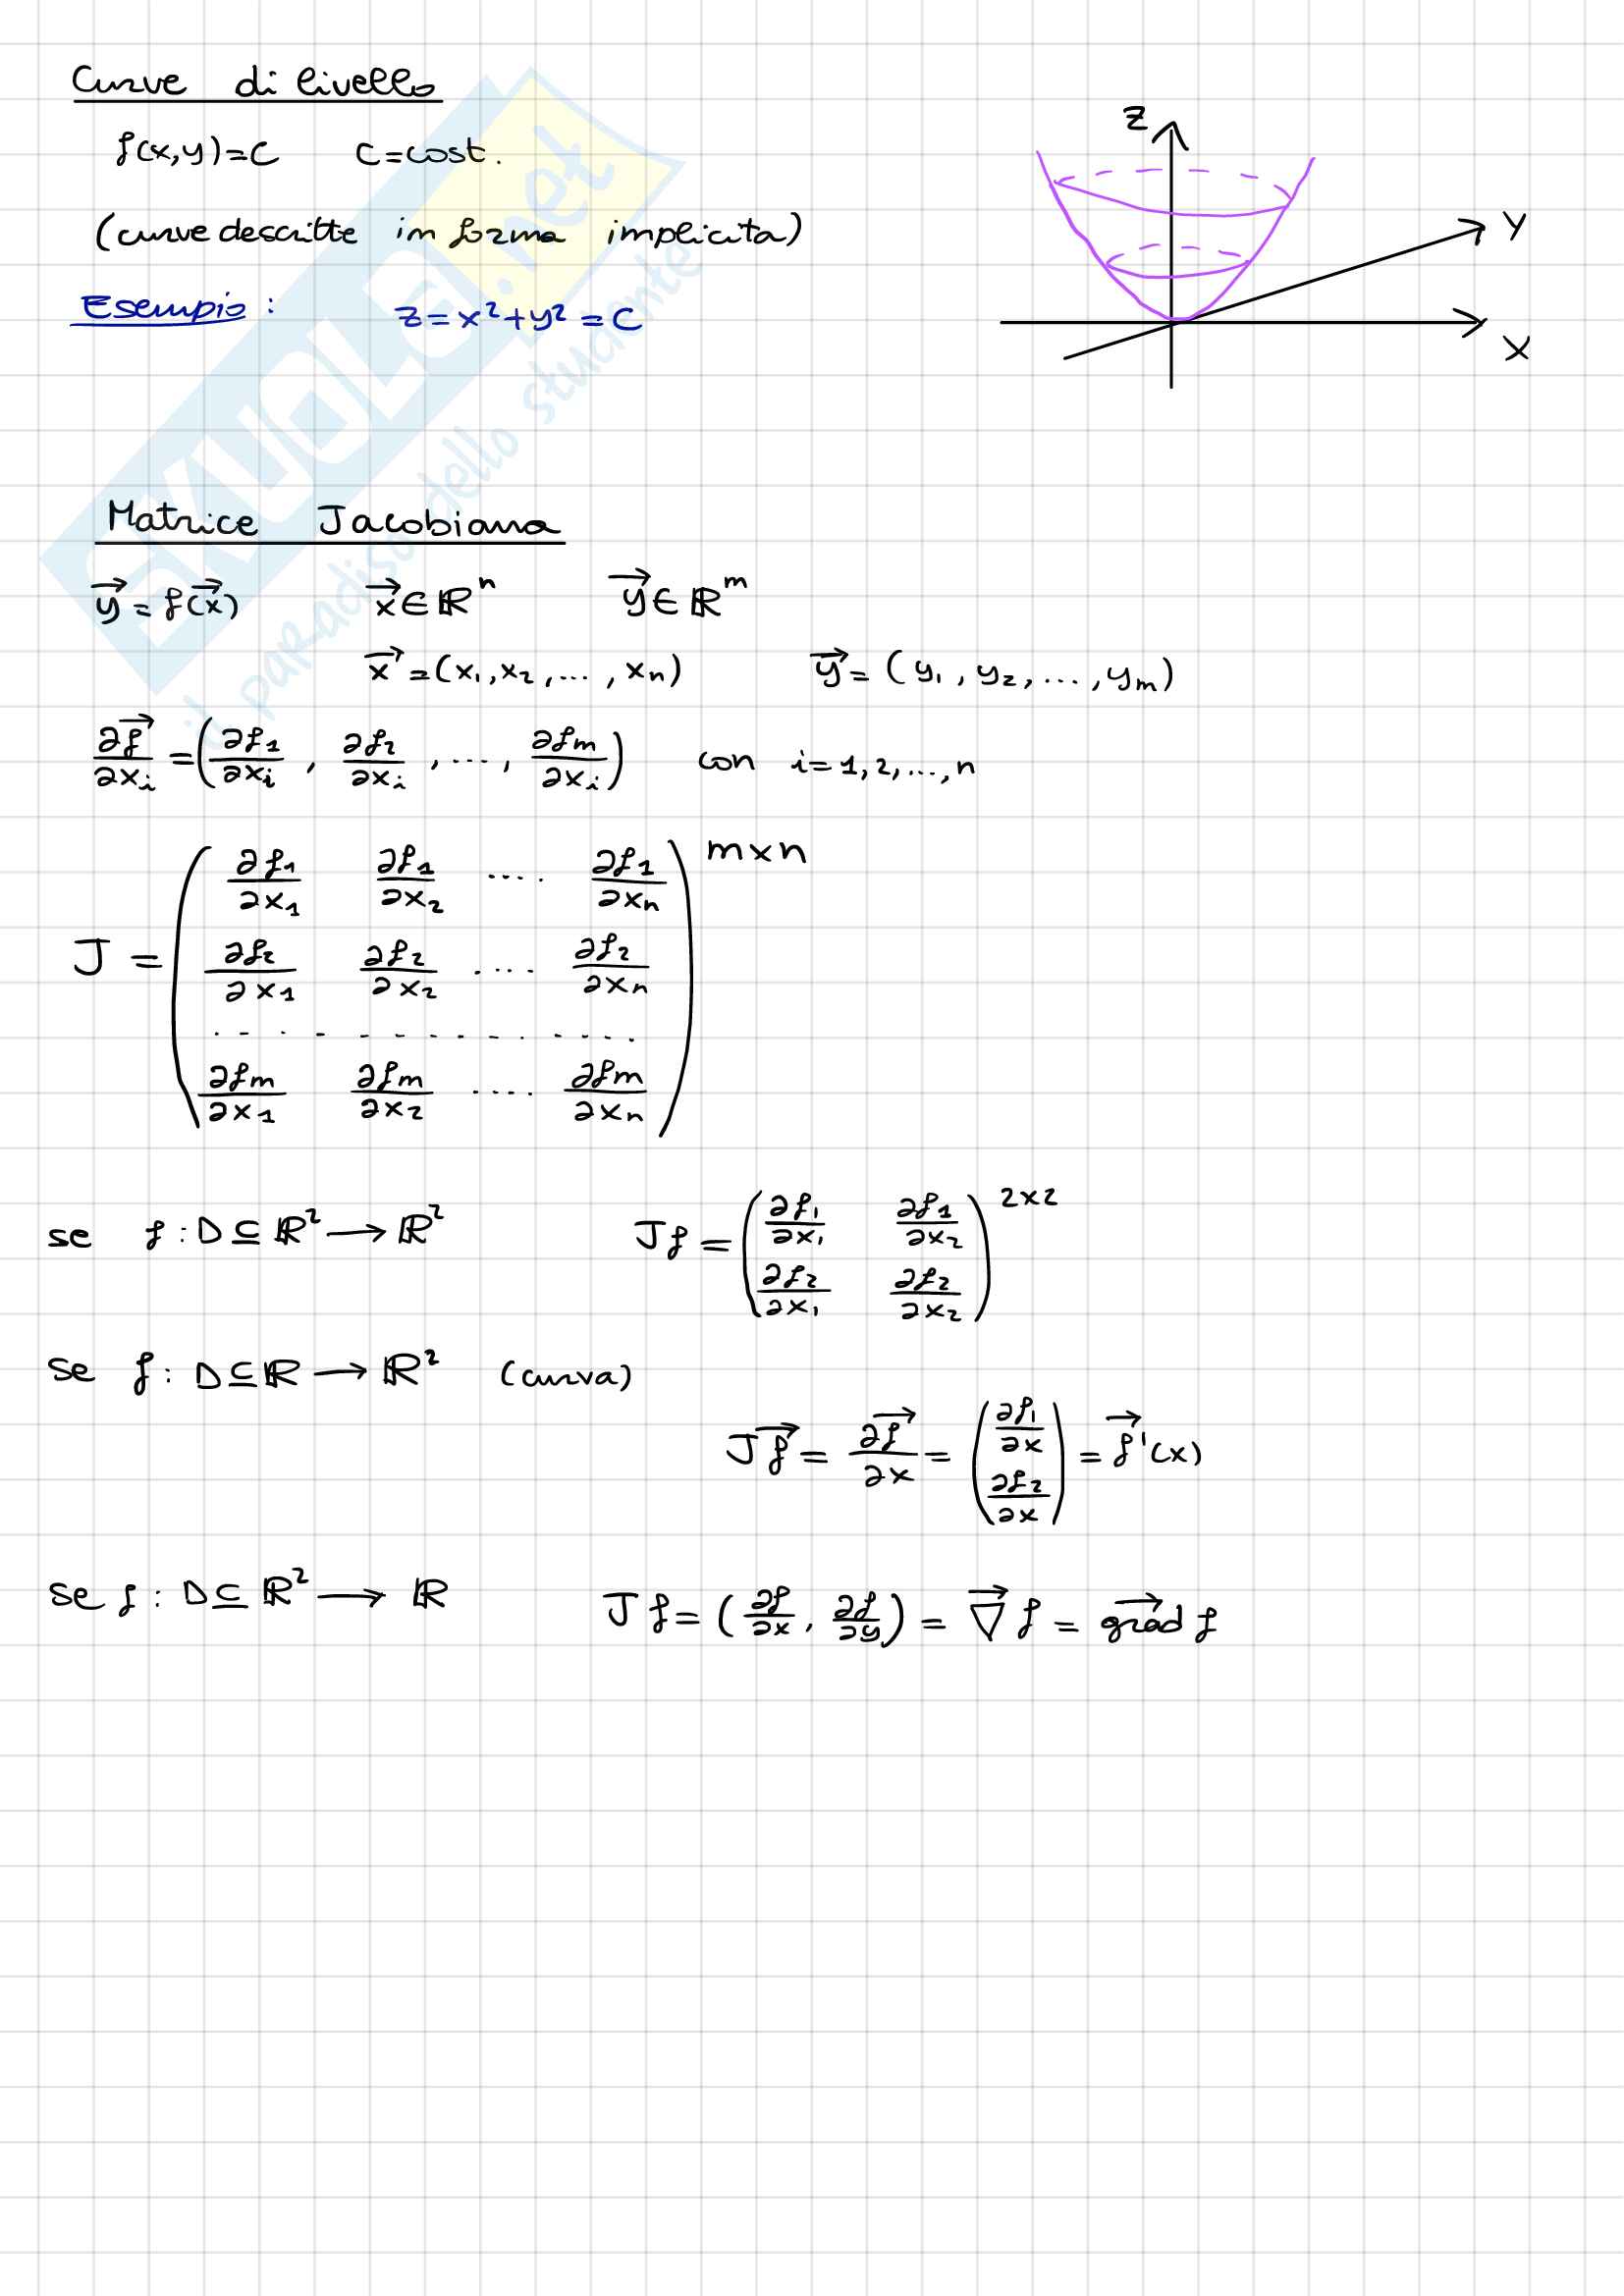 Curve di livello
f(x,y)=C C=cost.
(curve descritte in forma implicita)
Esempio: z=x²+y²=C
Z
Y
X
SKUOLA.net
il paradiso dello studente
Matrice Jacobiana
y⃗ = f(x⃗) x⃗∈ℝⁿ y⃗∈ℝᵐ
x⃗=(x₁,x₂,...,xₙ) y⃗=(y₁,y₂,...,yₘ)
∂f⃗/∂xᵢ=(∂f₁/∂xᵢ, ∂f₂/∂xᵢ, ..., ∂fₘ/∂xᵢ) con i=1,2,...,n
J = ( ∂f₁/∂x₁ ∂f₁/∂x₂ .... ∂f₁/∂xₙ ) m×n
∂f₂/∂x₁ ∂f₂/∂x₂ .... ∂f₂/∂xₙ
. . . . . . . . . . . .
∂fₘ/∂x₁ ∂fₘ/∂x₂ .... ∂fₘ/∂xₙ
se f: D⊆ℝ²→ℝ² Jf=( ∂f₁/∂x₁ ∂f₁/∂x₂ ) 2×2
∂f₂/∂x₁ ∂f₂/∂x₂
se f: D⊆ℝ→ℝ² (curva)
Jf⃗= ∂f⃗/∂x = ( ∂f₁/∂x ∂f₂/∂x ) = f⃗'(x)
se f: D⊆ℝ²→ℝ Jf=(∂f/∂x, ∂f/∂y) = ∇⃗f = grad⃗ f